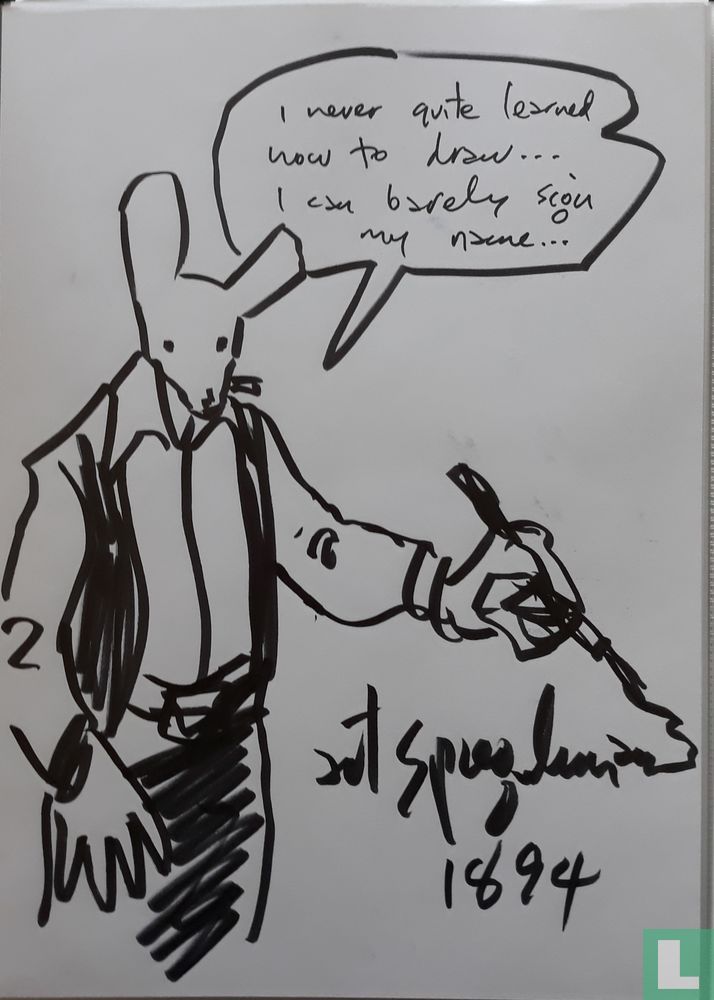 I never quite learned
how to draw...
I can barely sign
my name...
art spiegelman
1894
L